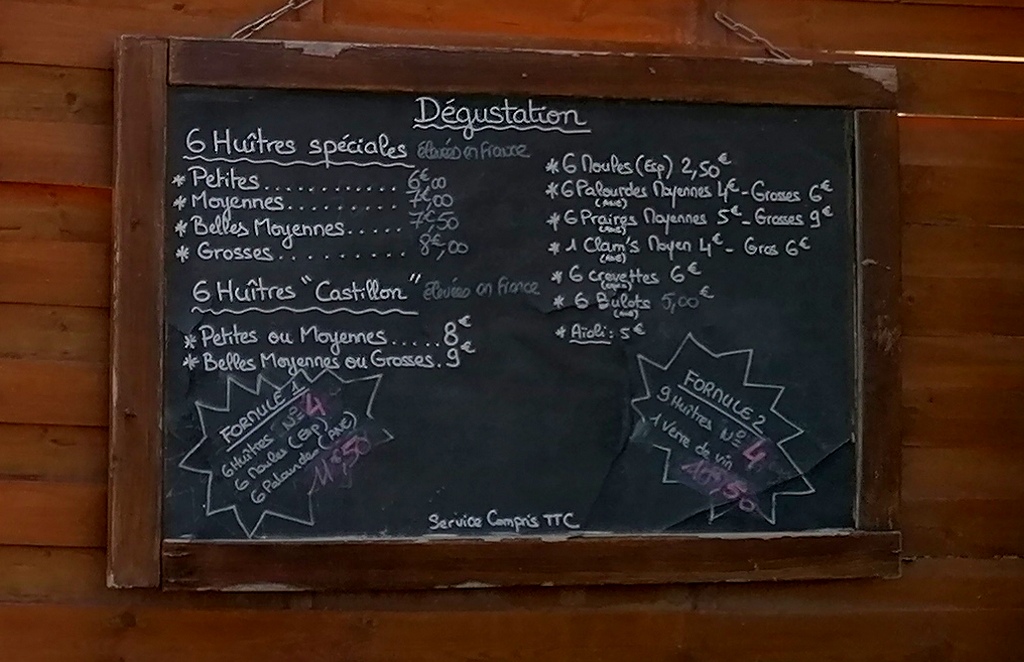 Dégustation
6 Huîtres spéciales élevées en France
* Petites............ 6€00
* Moyennes.......... 7€00
* Belles Moyennes..... 7€,50
* Grosses........... 8€,00
6 Huîtres "Castillon" élevées en France
* Petites ou Moyennes.....8€
* Belles Moyennes ou Grosses.9€
* 6 Moules (Esp) 2,50€
* 6 Palourdes Moyennes 4€-Grosses 6€
(ANE)
* 6 Praires Moyennes 5€-Grosses 9€
(ANE)
* 1 Clam's Moyen 4€- Gros 6€
(ANE)
* 6 crevettes 6€
* 6 Bulots 5,00€
(ANE)
* Aïoli : 5€
FORMULE 1
6 Huîtres N° 4
6 Moules (Esp)
6 Palourdes (ANE)
11€,50
FORMULE 2
9 Huîtres N° 4
1 Verre de vin
10€50
Service Compris TTC